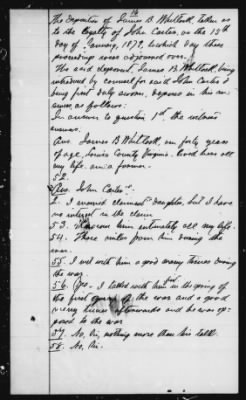 The Deposition of James B. Whitlock, taken as
to the loyalty of John Carter, on the 13th
day of January, 1872, to which day these
proceedings were adjourned over.
The said deponent, James B. Whitlock, being
produced by counsel for said John Carter &
being first duly sworn, deposes in his an-
swers, as follows:
In answer to question 1st the witness
answers.
Ans. James B. Whitlock, am forty years
of age, Louisa County Virginia. lived here all
my life. am a farmer.
52.
Ans. John Carter.
2. I married claimant's daughter, but I have
no interest in the claim
53. I know him intimately all my life.
54. Three miles from him during the
war.
55. I met with him a good many times during
the war.
56. Yes. I talked with him in the spring of
the first year of the war and a good
many times afterwards and he was op-
posed to the war
57. No, Sir, nothing more than his talk.
58. No, Sir.